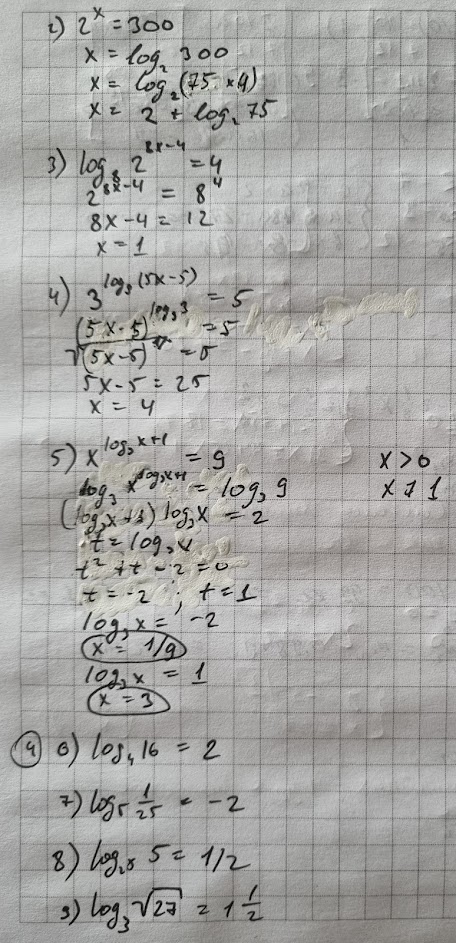 2) 2^x = 300
x = log₂ 300
x = log₂(75 × 4)
x = 2 + log₂ 75
3) log₈ 2^(8x-4) = 4
2^(8x-4) = 8⁴
8x - 4 = 12
x = 1
4) 3^(log₉(5x-5)) = 5
(5x-5)^(log₉3) = 5
√(5x-5) = 5
5x - 5 = 25
x = 4
5) x^(log₃x+1) = 9 x > 0
log₃ x^(log₃x+1) = log₃ 9 x ≠ 1
(log₃x+1) log₃x = 2
t = log₃x
t² + t - 2 = 0
t = -2 ; t = 1
log₃x = -2
x = 1/9
log₃x = 1
x = 3
4 6) log₄ 16 = 2
7) log₅ 1/25 = -2
8) log₂₅ 5 = 1/2
9) log₃ √27 = 1 1/2